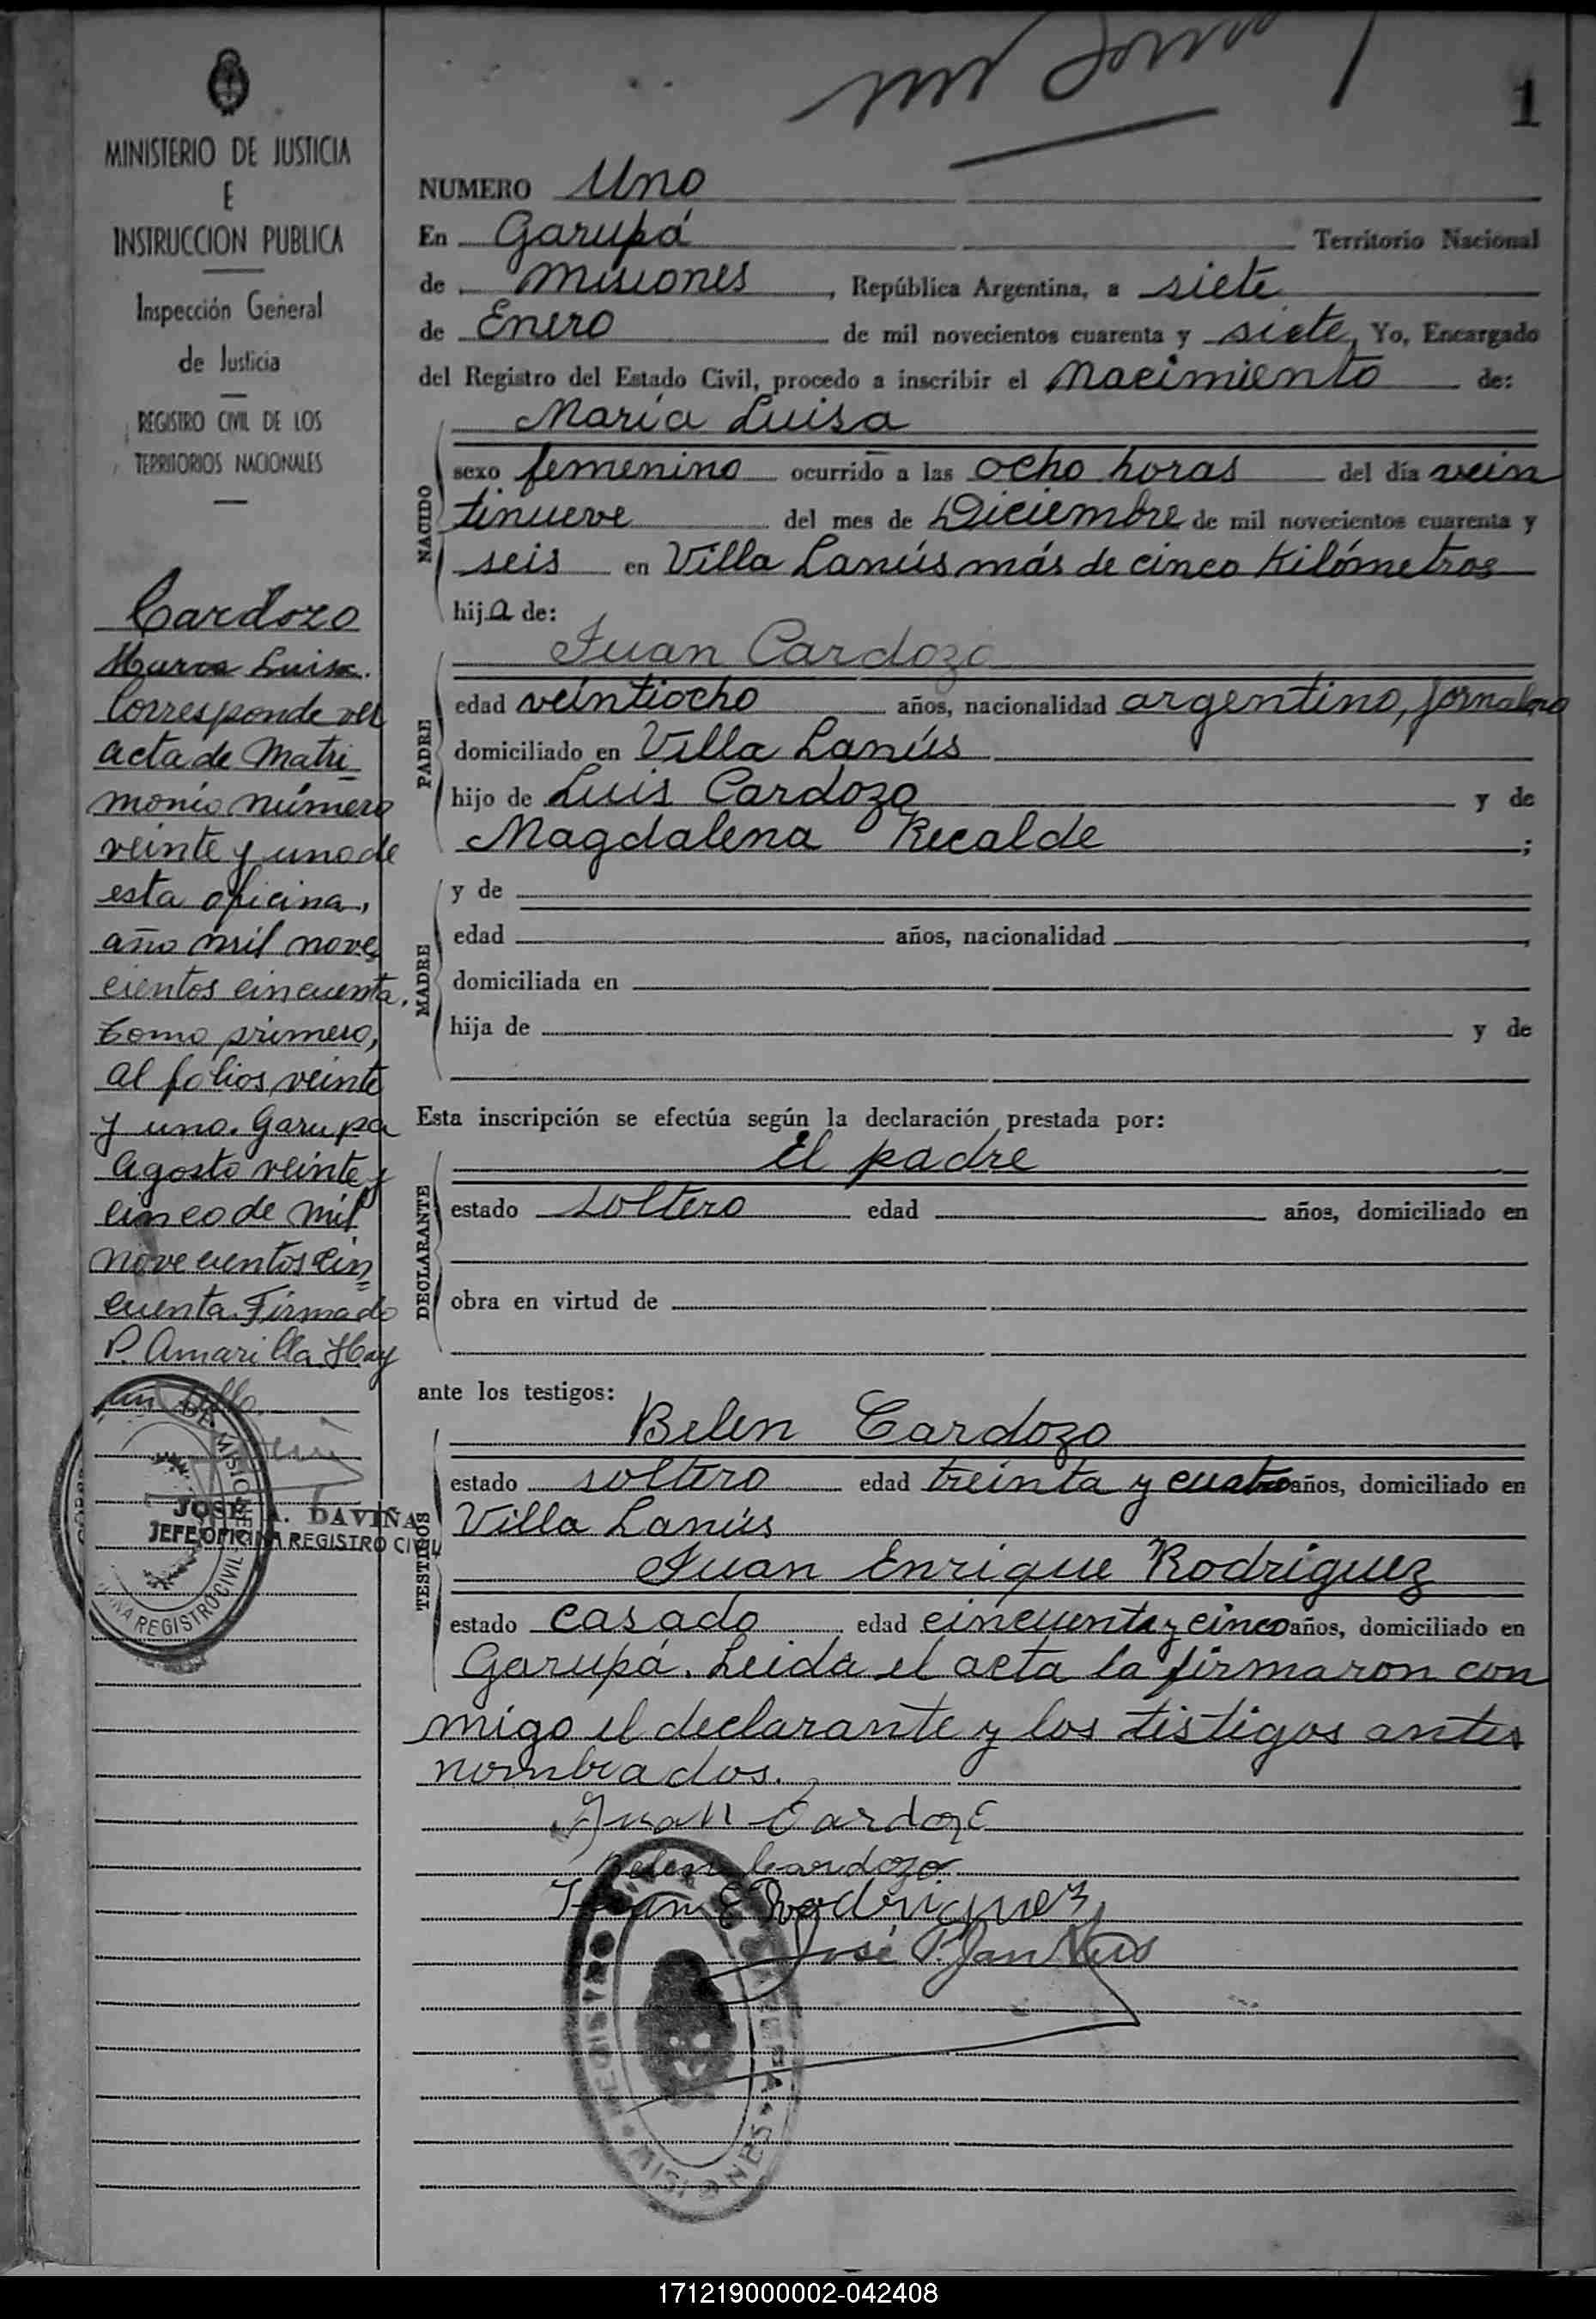 1
MINISTERIO DE JUSTICIA
E
INSTRUCCION PUBLICA
Inspección General
de Justicia
REGISTRO CIVIL DE LOS
TERRITORIOS NACIONALES
Cardozo
Maria Luisa.
Corresponde ver
acta de Matri
monio número
veinte y uno de
esta oficina,
año mil nove
cientos cincuenta.
Tomo primero,
al folios veinte
y uno. Garupa
Agosto veinte y
cinco de mil
novecientos cin
cuenta. Firmado
P. Amarilla. Hay
un sello.
JOSE A. DAVIÑA
JEFE OFICINA REGISTRO CIVIL
NUMERO Uno
En Garupá Territorio Nacional
de Misiones, República Argentina, a siete
de Enero de mil novecientos cuarenta y siete, Yo, Encargado
del Registro del Estado Civil, procedo a inscribir el Nacimiento de:
NACIDO
María Luisa
sexo femenino ocurrido a las ocho horas del día vein
tinueve del mes de Diciembre de mil novecientos cuarenta y
seis en Villa Lanús más de cinco Kilómetros
hija de:
PADRE
Juan Cardozo
edad veintiocho años, nacionalidad argentino, jornalero
domiciliado en Villa Lanús
hijo de Luis Cardozo y de
Magdalena Recalde ;
MADRE
y de
edad años, nacionalidad ,
domiciliada en
hija de y de
Esta inscripción se efectúa según la declaración prestada por:
DECLARANTE
El padre
estado soltero edad años, domiciliado en
obra en virtud de
ante los testigos:
TESTIGOS
Belen Cardozo
estado soltero edad treinta y cuatro años, domiciliado en
Villa Lanús
Juan Enrique Rodriguez
estado casado edad cincuenta y cinco años, domiciliado en
Garupá. Leida el acta la firmaron con
migo el declarante y los tistigos antes
nombrados.
Juan Cardozo
Belen Cardozo
Juan E Rodriguez
José P.
REGISTRO CIVIL
MISIONES
171219000002-042408